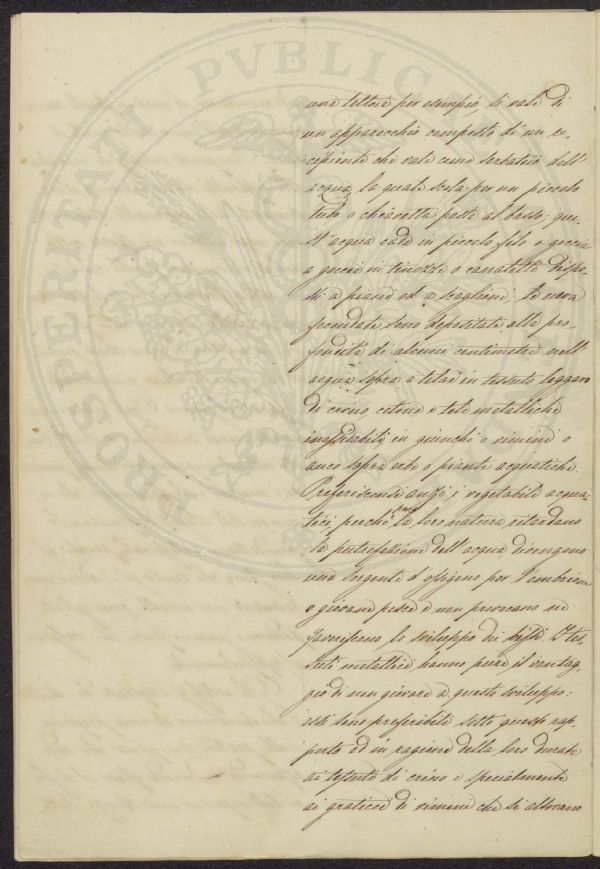 PROSPERITATI PVBLICAE
una tettoia per esempio, si vale di
un apparecchio composto di un re-
cipiente che vale come serbatoio dell'
acqua, la quale scola per un piccolo
tubo o chiavetta posta al basso, que-
st'acqua cade in piccolo filo o goccia
a goccia in tinozze o canaletti dispo-
sti a piani od a scaglioni; le uova
fecondate sono depositate alla pro-
fondità di alcuni centimetri nell'
acqua sopra a telai in tessuto leggero
di crino, cotone o tele metalliche
inossidabili in giunchi o vimini o
anco sopra erbe o piante acquatiche.
Preferisconsi anzi i vegetabili acqua-
tici, perchè per la loro natura ritardano
la putrefazione dell'acqua divengono
una sorgente d'ossigeno per l'embrione
o giovane pesce e non provocano nè
favoriscono lo sviluppo dei bissi. I tes-
suti metallici hanno pure il vantag-
gio di non giovare a questo sviluppo:
essi sono preferibili sotto questo rap-
porto ed in ragione della loro durata
ai tessuti di crino e specialmente
ai graticci di vimine che si alterano